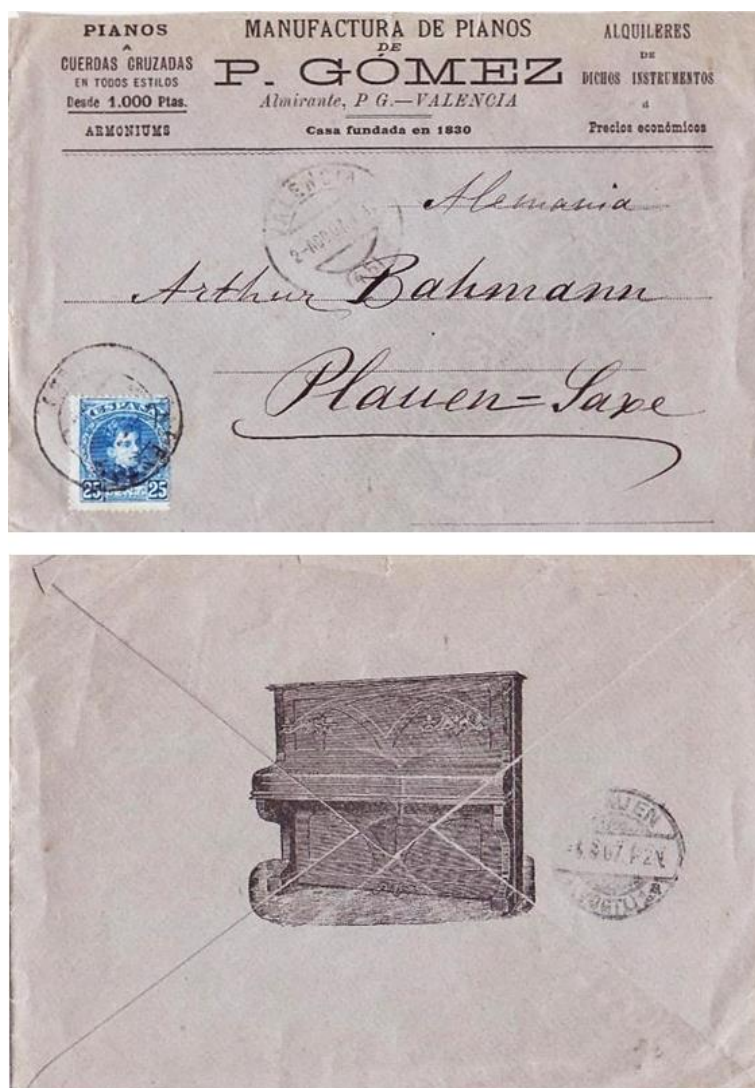 PIANOS
A
CUERDAS CRUZADAS
EN TODOS ESTILOS
Desde 1.000 Ptas.
ARMONIUMS
MANUFACTURA DE PIANOS
DE
P. GÓMEZ
Almirante, P G.—VALENCIA
Casa fundada en 1830
ALQUILERES
DE
DICHOS INSTRUMENTOS
á
Precios económicos
Alemania
Arthur Bahmann
Plauen=Saxe
ESPAÑA
25 25